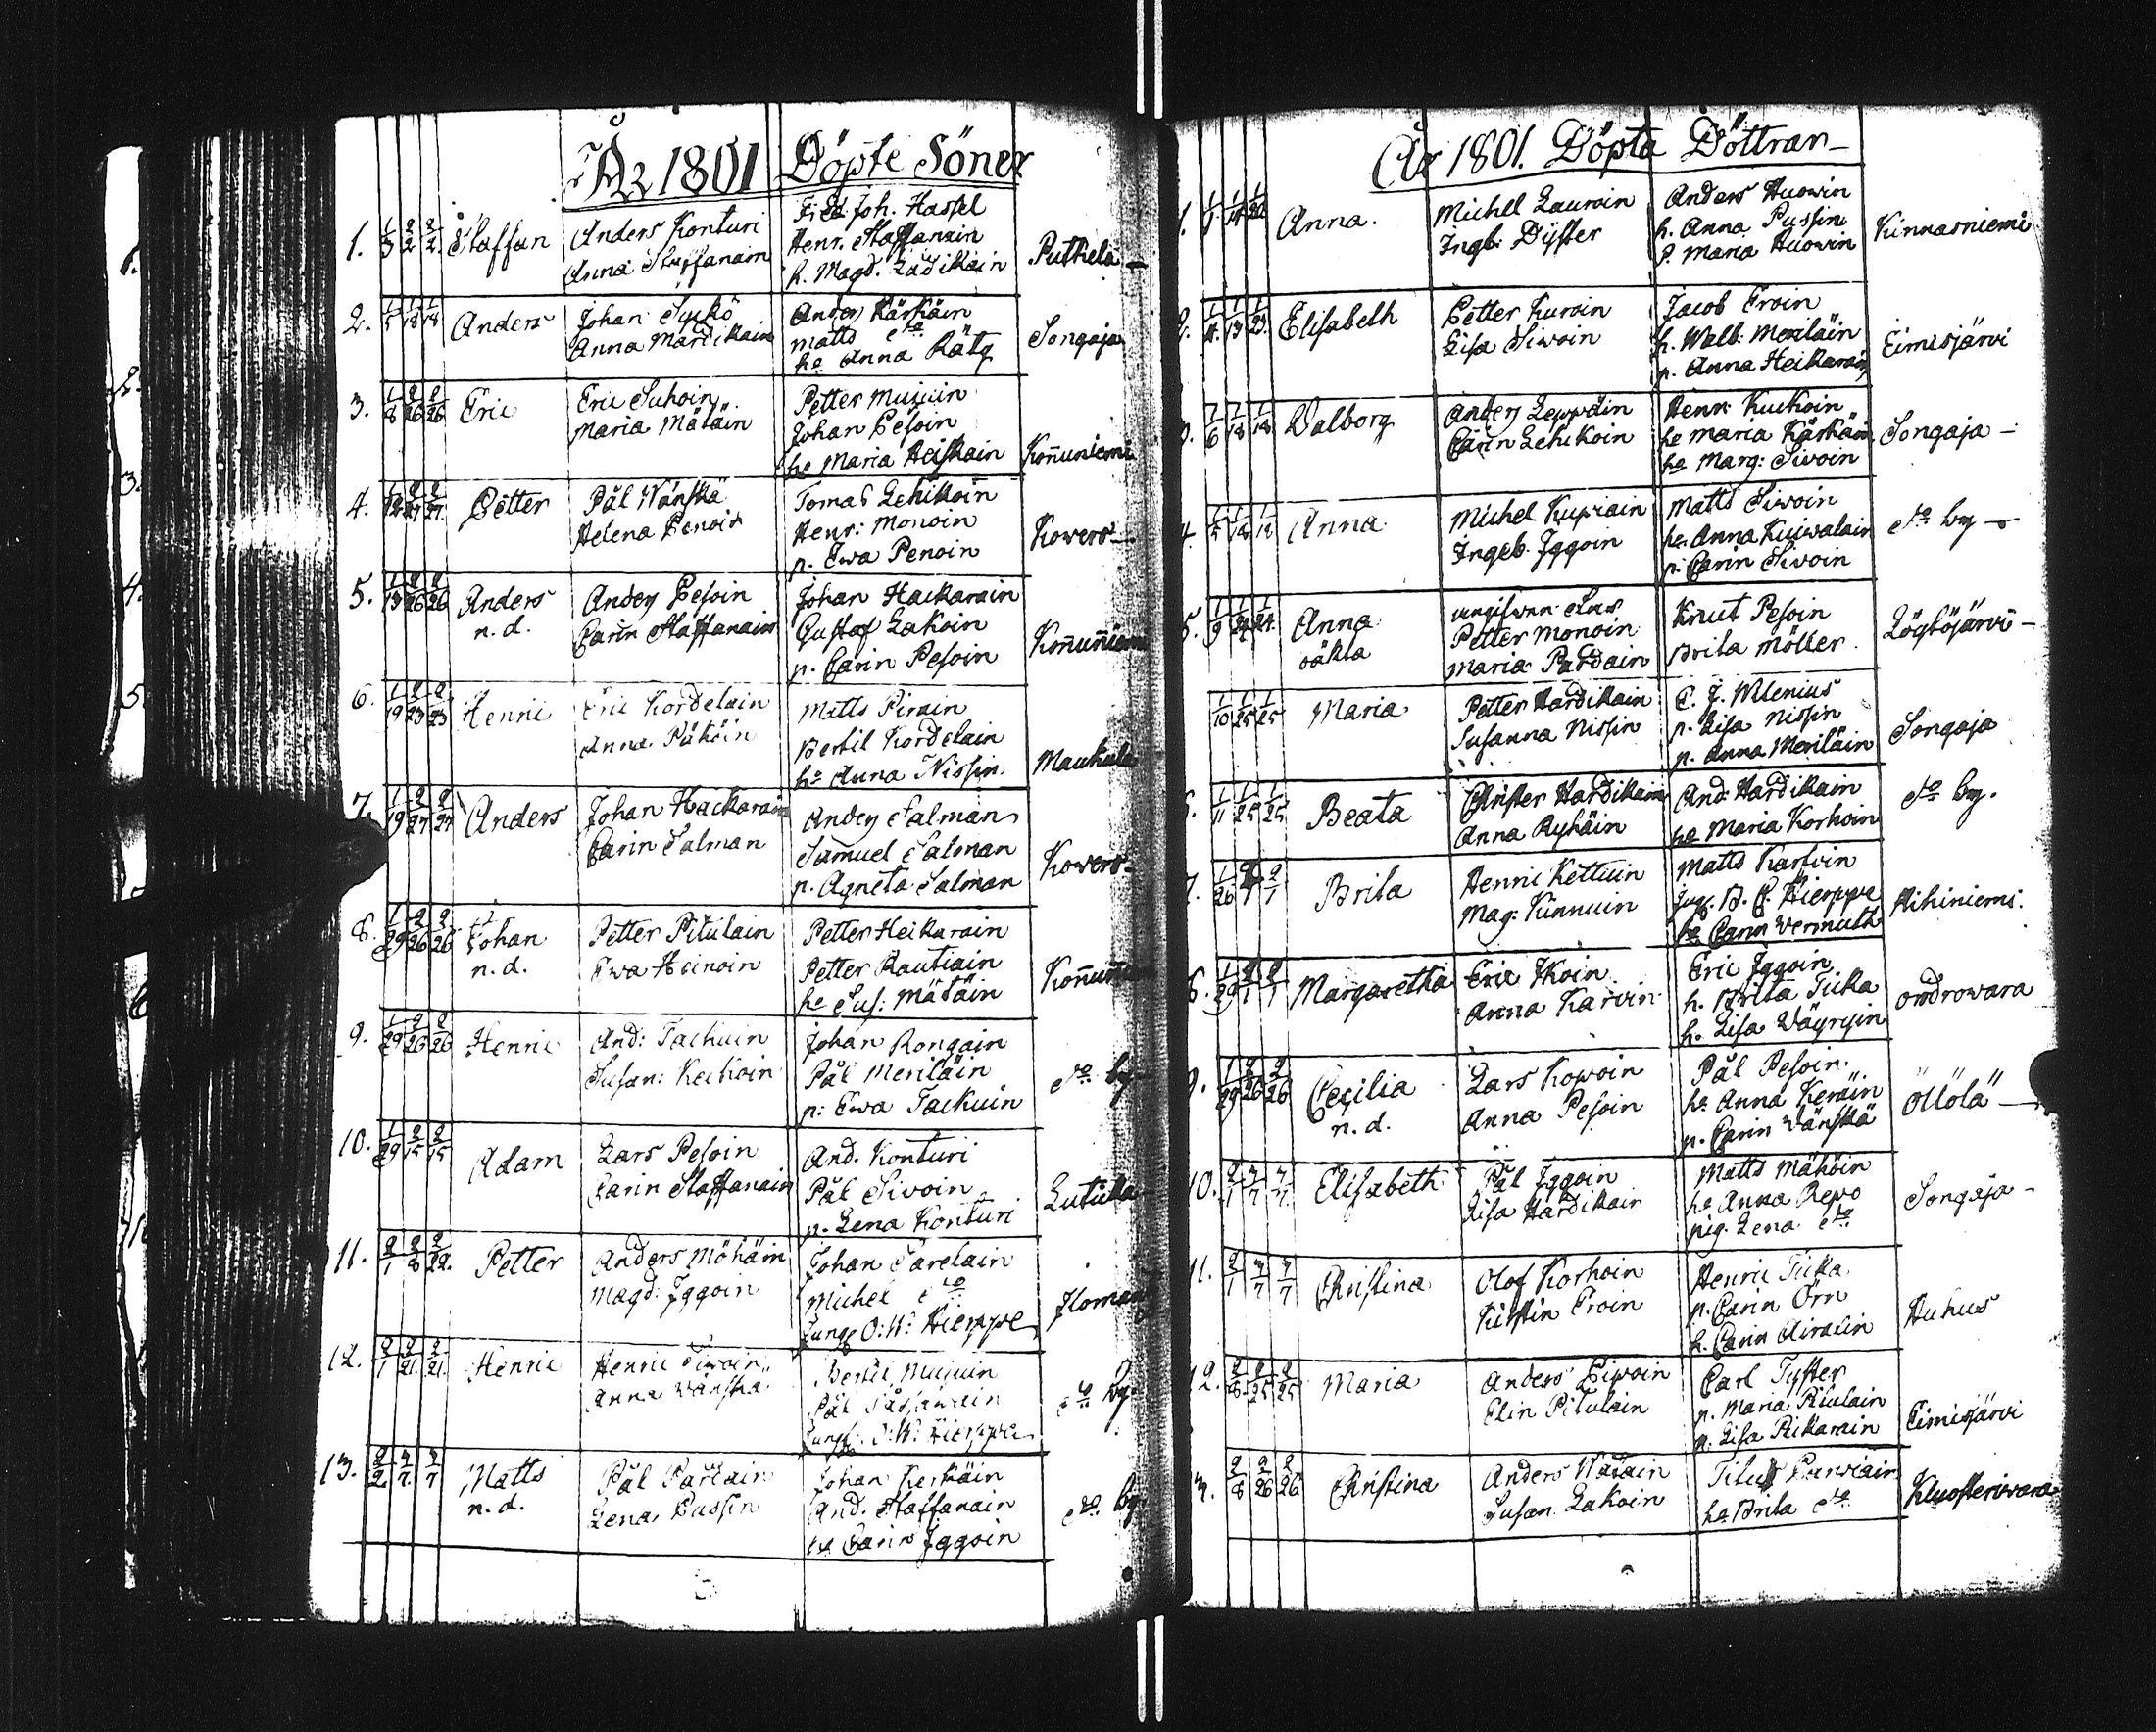 År 1801 Döpte Söner
1. 1/3 2/2 2/2. Staffan
Anders Konturi
Anna Staffanain
Joh. Hassel
Henr. Staffanain
h. Magd.
Puthela
2. 1/5 1/18 1/18 Anders
Johan Syckö
Anna Mardikain
Anders Kärkäin
Matts do
ho Anna Räty
Songaja
3. 1/8 2/26 2/26 Eric
Eric Suhoin
Maria Mätäin
Petter Mujuin
Johan Pesoin
ho Maria Heiskain
Koñuniemi
4. 1/12 2/27 2/27. Petter
Pål Wänskä
Helena Penoin
Tomas Lehikoin
Henr: Monoin
p. Ewa Penoin
Kowero
5. 1/13 2/26 2/26 Anders
n. d.
Anders Pesoin
Carin Staffanain
Johan Hackarain
Gustaf Lakoin
p. Carin Pesoin
Koñuñiemi
6. 1/19 2/23 2/23 Henric
Eric Kordelain
Anna Päköin
Matts Pirain
Bertil Kordelain
ho Anna Nissin
Maukula
7. 1/19 2/27 2/27 Anders
Johan Hackarain
Carin Salman
Anders Salman
Samuel Salman
p. Agneta Salman
Kowero
8. 1/29 2/26 2/26 Johan
n. d.
Petter Pitulain
Ewa Heinoin
Petter Heikarain
Petter Rautiain
ho Sus: Mätäin
Koñuñ
9. 1/29 2/26 2/26 Henric
And: Tackuin
Susan: Keckoin
Johan Rongain
Pål Meriläin
p: Ewa Tackuin
do by
10. 1/29 2/15 2/15 Adam
Lars Pesoin
Carin Staffanain
And. Konturi
Pål Sivoin
p. Lena Konturi
Luticka
11. 2/1 2/8 2/22. Petter
Anders Möhäin
Magd: Iggoin
Johan Sarelain
Michel do
Jungf O: W: Kieppe
Ilomans
12. 2/1 2/21 2/21. Henric
Henric Siwoin
Anna Wänskä
Bertil Mujuin
Pål
Jungf: O: W: Kieppe
do by
13. 2/2 7/7 7/7 Matts
n. d.
Pål Partain
Lena Pussin
Johan Kerkäin
And. Staffanain
ho Carin Iggoin
do by
År 1801. Döpta Döttrar
1. 1/1 Anna.
Michel Laurain
Ingb: Dyster
Anders Huowin
h. Anna Pussin
p. Maria Huowin
Kinnasniemi
2. 1/4 1/13 1/23. Elisabeth
Petter Kuroin
Lisa Siwoin
Jacob Eroin
h. Walb: Meriläin
p. Anna Heikarain
Eimisjärvi
3. 1/6 1/18 1/18 Valborg
Anders Leppäin
Carin Lehikoin
Henr: Kuckoin
ho Maria Kärkäin
ho Marg: Sivoin
Songaja
4. 1/5 1/18 1/18 Anna
Michel Kupiain
Ingeb. Iggoin
Matts Siwoin
ho. Anna Kuiwalain
p. Carin Sivoin
do by
5. 1/9 1/24 1/24. Anna
oäkta
Petter Monoin
Maria Pardain
Knut Pesoin
Brita Möller
LögLöjärvi
1/10 1/25 1/25 Maria
Petter Hardikain
Susanna Nissin
C. J. Wlenius
p. Lisa Nissin
p. Anna Meriläin
Songaja
6. 1/11 1/25 1/25 Beata
Christer Hardikain
Anna Ryhäin
And: Hardikain
ho Maria Korhoin
do by.
7. 1/26 2/1 2/1 Brita
Henric Kettuin
Mag: Kinnuin
Matts Karvin
Jugf. B. C. Kieppe
ho Carin Vermuth
Kihiniemi.
8. 1/29 2/1 2/1 Margaretha
Eric Ikoin
Anna Karvin
Eric Iggoin
h. Brita Ticka
h. Lisa Väyryin
Ondrowara
9. 1/29 2/26 2/26 Cecilia
n. d.
Lars Kowoin
Anna Pesoin
Pål Pesoin
ho Anna Keräin
p. Carin Wänskä
Öllölä
10. 2/1 7/7 7/7. Elisabeth
Pål Iggoin
Lisa Hardikain
Matts Mähöin
ho Anna Repo
pig. Lena do
Songaja
11. 2/1 7/7 7/7 Christina
Olof Korhoin
Kirstin Eroin
Henric Ticka
p. Carin Örn
h. Carin
Huhus
12. 2/8 2/25 2/25 Maria
Anders Piwoin
Elin Pitulain
Carl Tyster
p. Maria Pitulain
p. Lisa Pickarain
Eimisjärvi
2/8 2/26 2/26 Christina
Anders Wätäin
Susan Lakoin
Titus Purviain
ho Brita do
Kluosterivara